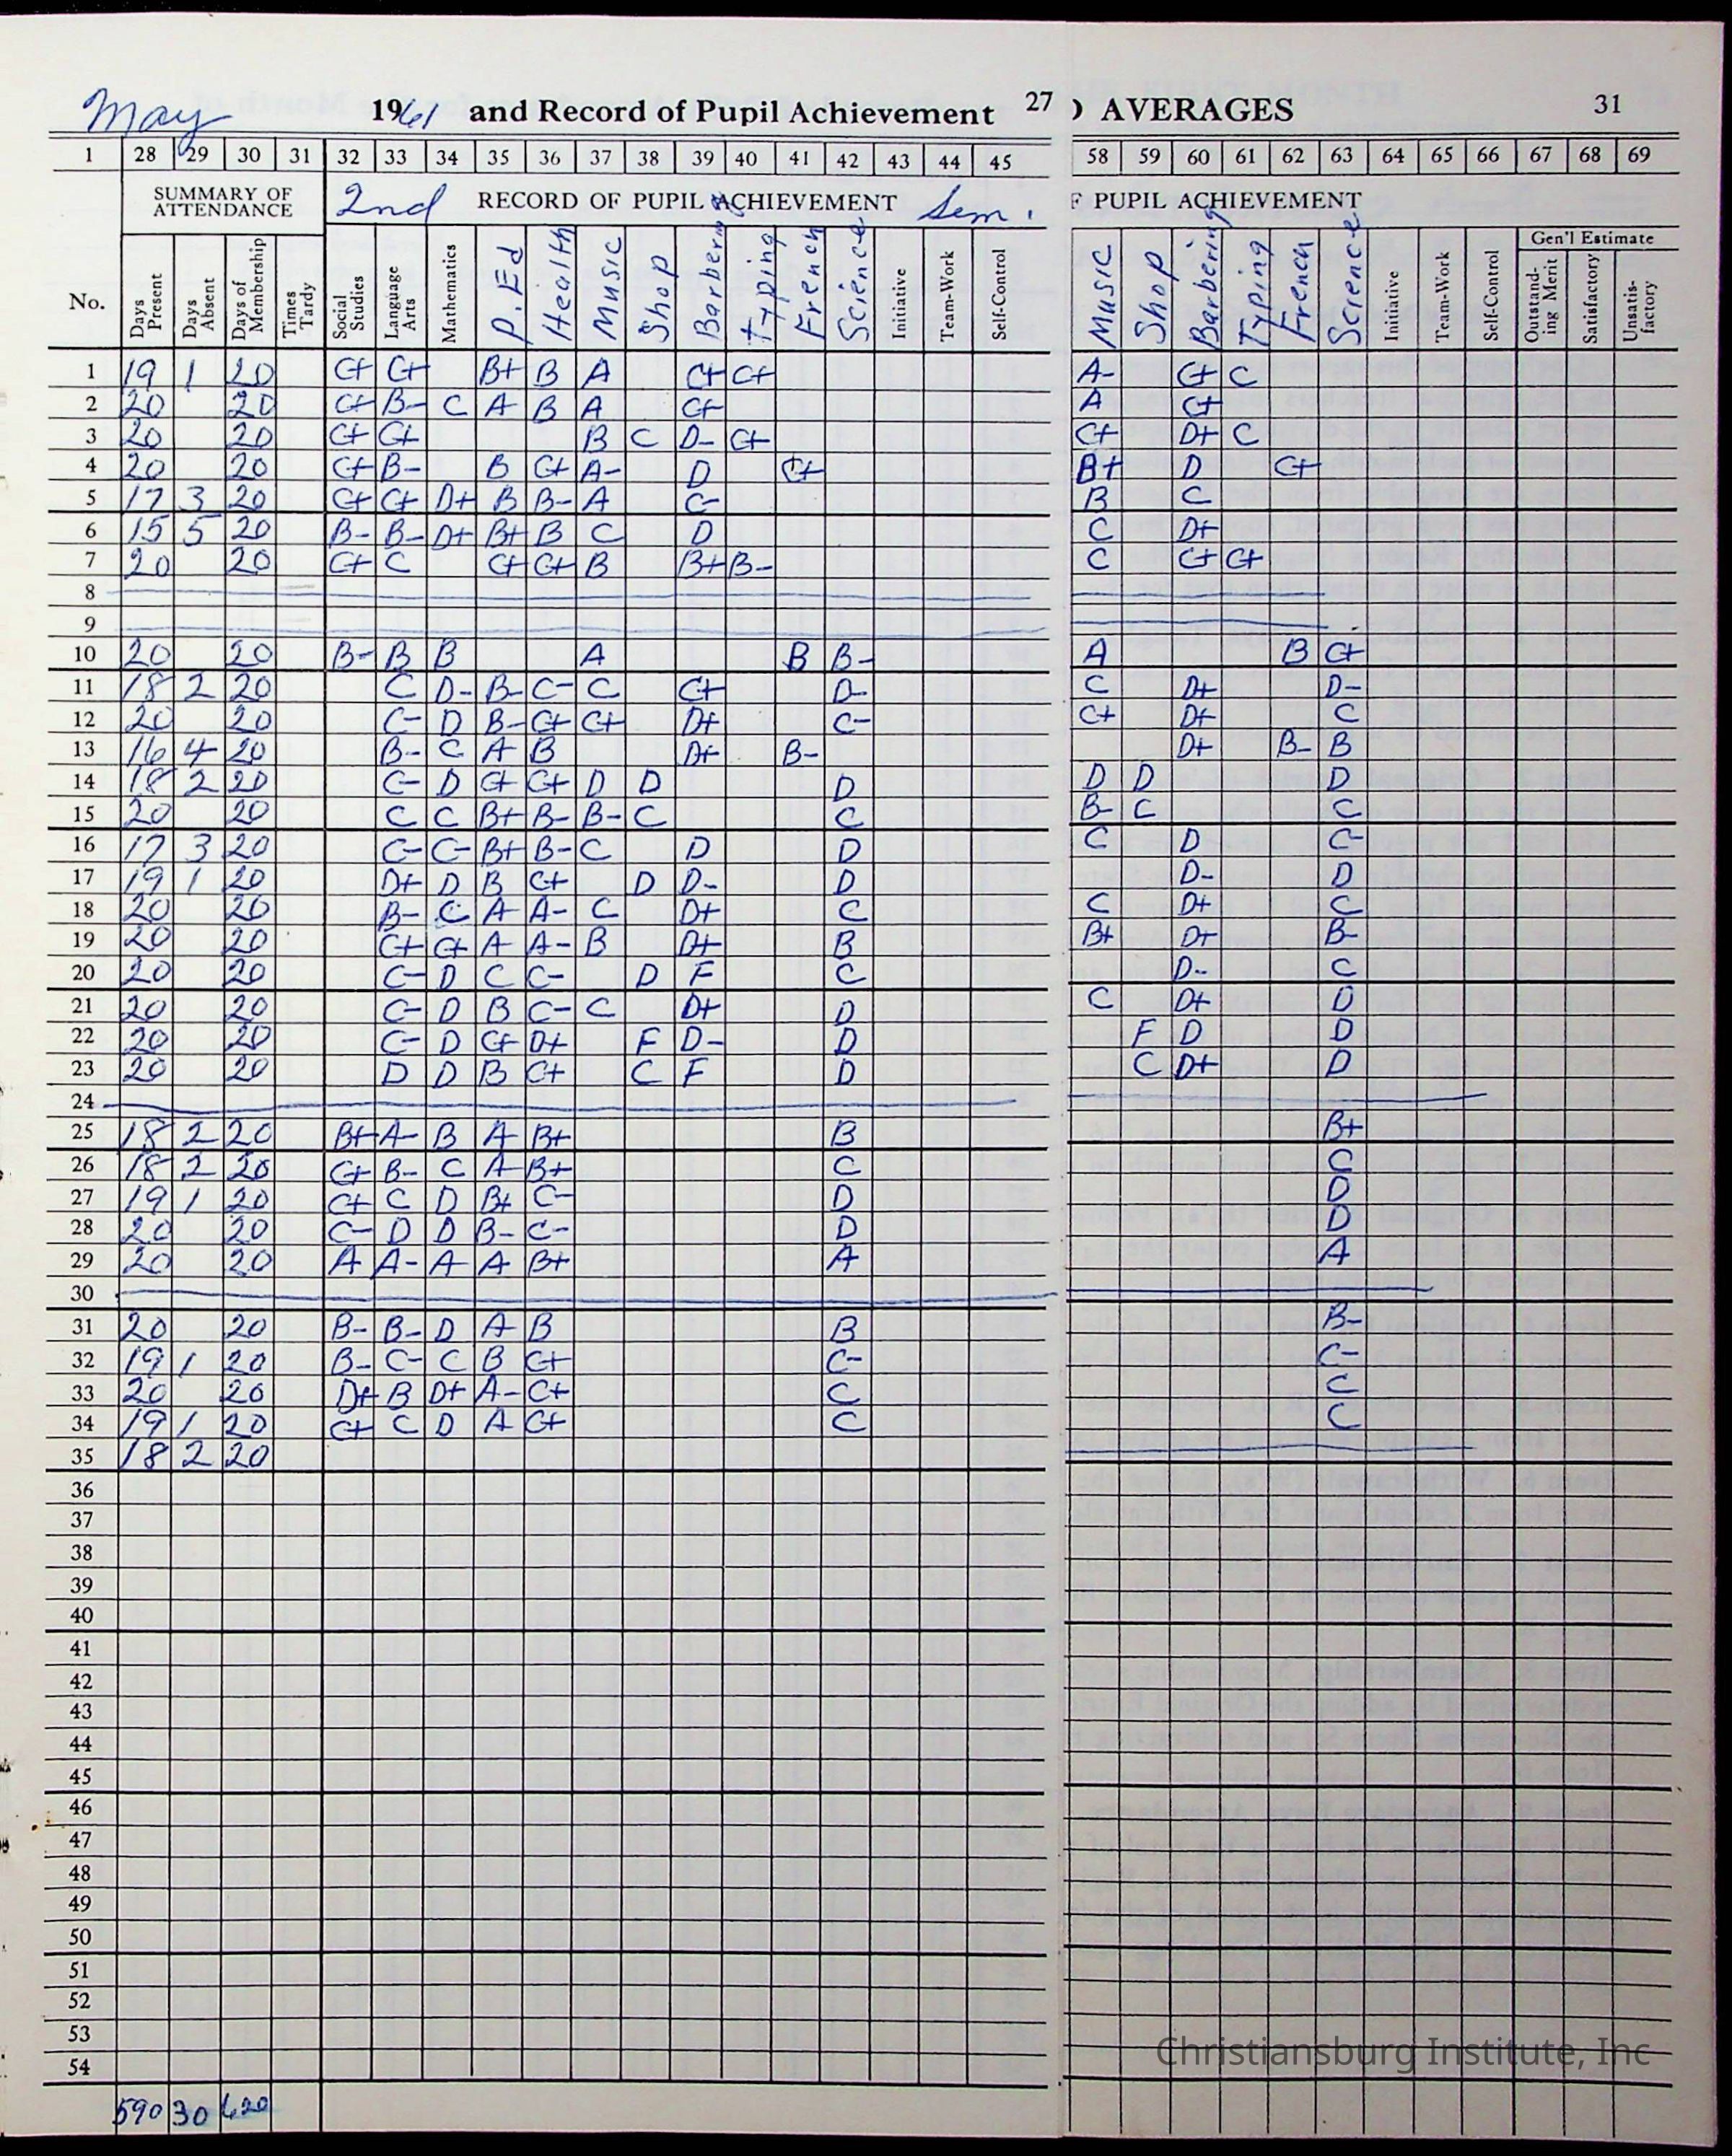 May 1961 and Record of Pupil Achievement 27 ) AVERAGES 31
1 28 29 30 31 32 33 34 35 36 37 38 39 40 41 42 43 44 45 58 59 60 61 62 63 64 65 66 67 68 69
SUMMARY OF ATTENDANCE 2nd RECORD OF PUPIL ACHIEVEMENT Sem. F PUPIL ACHIEVEMENT
Gen'l Estimate
No. Days Present Days Absent Days of Membership Times Tardy Social Studies Language Arts Mathematics P. Ed Health Music Shop Barbering Typing French Science Initiative Team-Work Self-Control Music Shop Barbering Typing French Science Initiative Team-Work Self-Control Outstand-ing Merit Satisfactory Unsatis-factory
1 19 1 20 C+ C+ B+ B A C+ C+ A- C+ C
2 20 20 C+ B- C A B A C+ A C+
3 20 20 C+ C+ B C D- C+ C+ D+ C
4 20 20 C+ B- B C+ A- D C+ B+ D C+
5 17 3 20 C+ C+ D+ B B- A C- B C-
6 15 5 20 B- B- D+ B+ B C D C D+
7 20 20 C+ C C+ C+ B B+ B- C C+ C+
8
9
10 20 20 B- B B A B B- A B C+
11 18 2 20 C D- B- C- C C+ D- C D+ D-
12 20 20 C- D B- C+ C+ D+ C- C+ D+ C
13 16 4 20 B- C A B D+ B- D+ B- B
14 18 2 20 C- D C+ C+ D D D D D D
15 20 20 C C B+ B- B- C C B- C C
16 17 3 20 C- C- B+ B- C D D C D C-
17 19 1 20 D+ D B C+ D D- D D- D
18 20 20 B- C A A- C D+ C C D+ C
19 20 20 C+ C+ A A- B D+ B B+ D+ B-
20 20 20 C- D C C- D F C D- C
21 20 20 C- D B C- C D+ D C D+ D
22 20 20 C- D C+ D+ F D- D F D D
23 20 20 D D B C+ C F D C D+ D
24
25 18 2 20 B+ A- B A B+ B B+
26 18 2 20 C+ B- C A B+ C C
27 19 1 20 C+ C D B+ C- D D
28 20 20 C- D D B- C- D D
29 20 20 A A- A A B+ A A
30
31 20 20 B- B- D A B B B-
32 19 1 20 B- C- C B C+ C- C-
33 20 20 D+ B D+ A- C+ C C
34 19 1 20 C+ C D A C+ C C
35 18 2 20
36
37
38
39
40
41
42
43
44
45
46
47
48
49
50
51
52
53
54
590 30 620
Christiansburg Institute, Inc